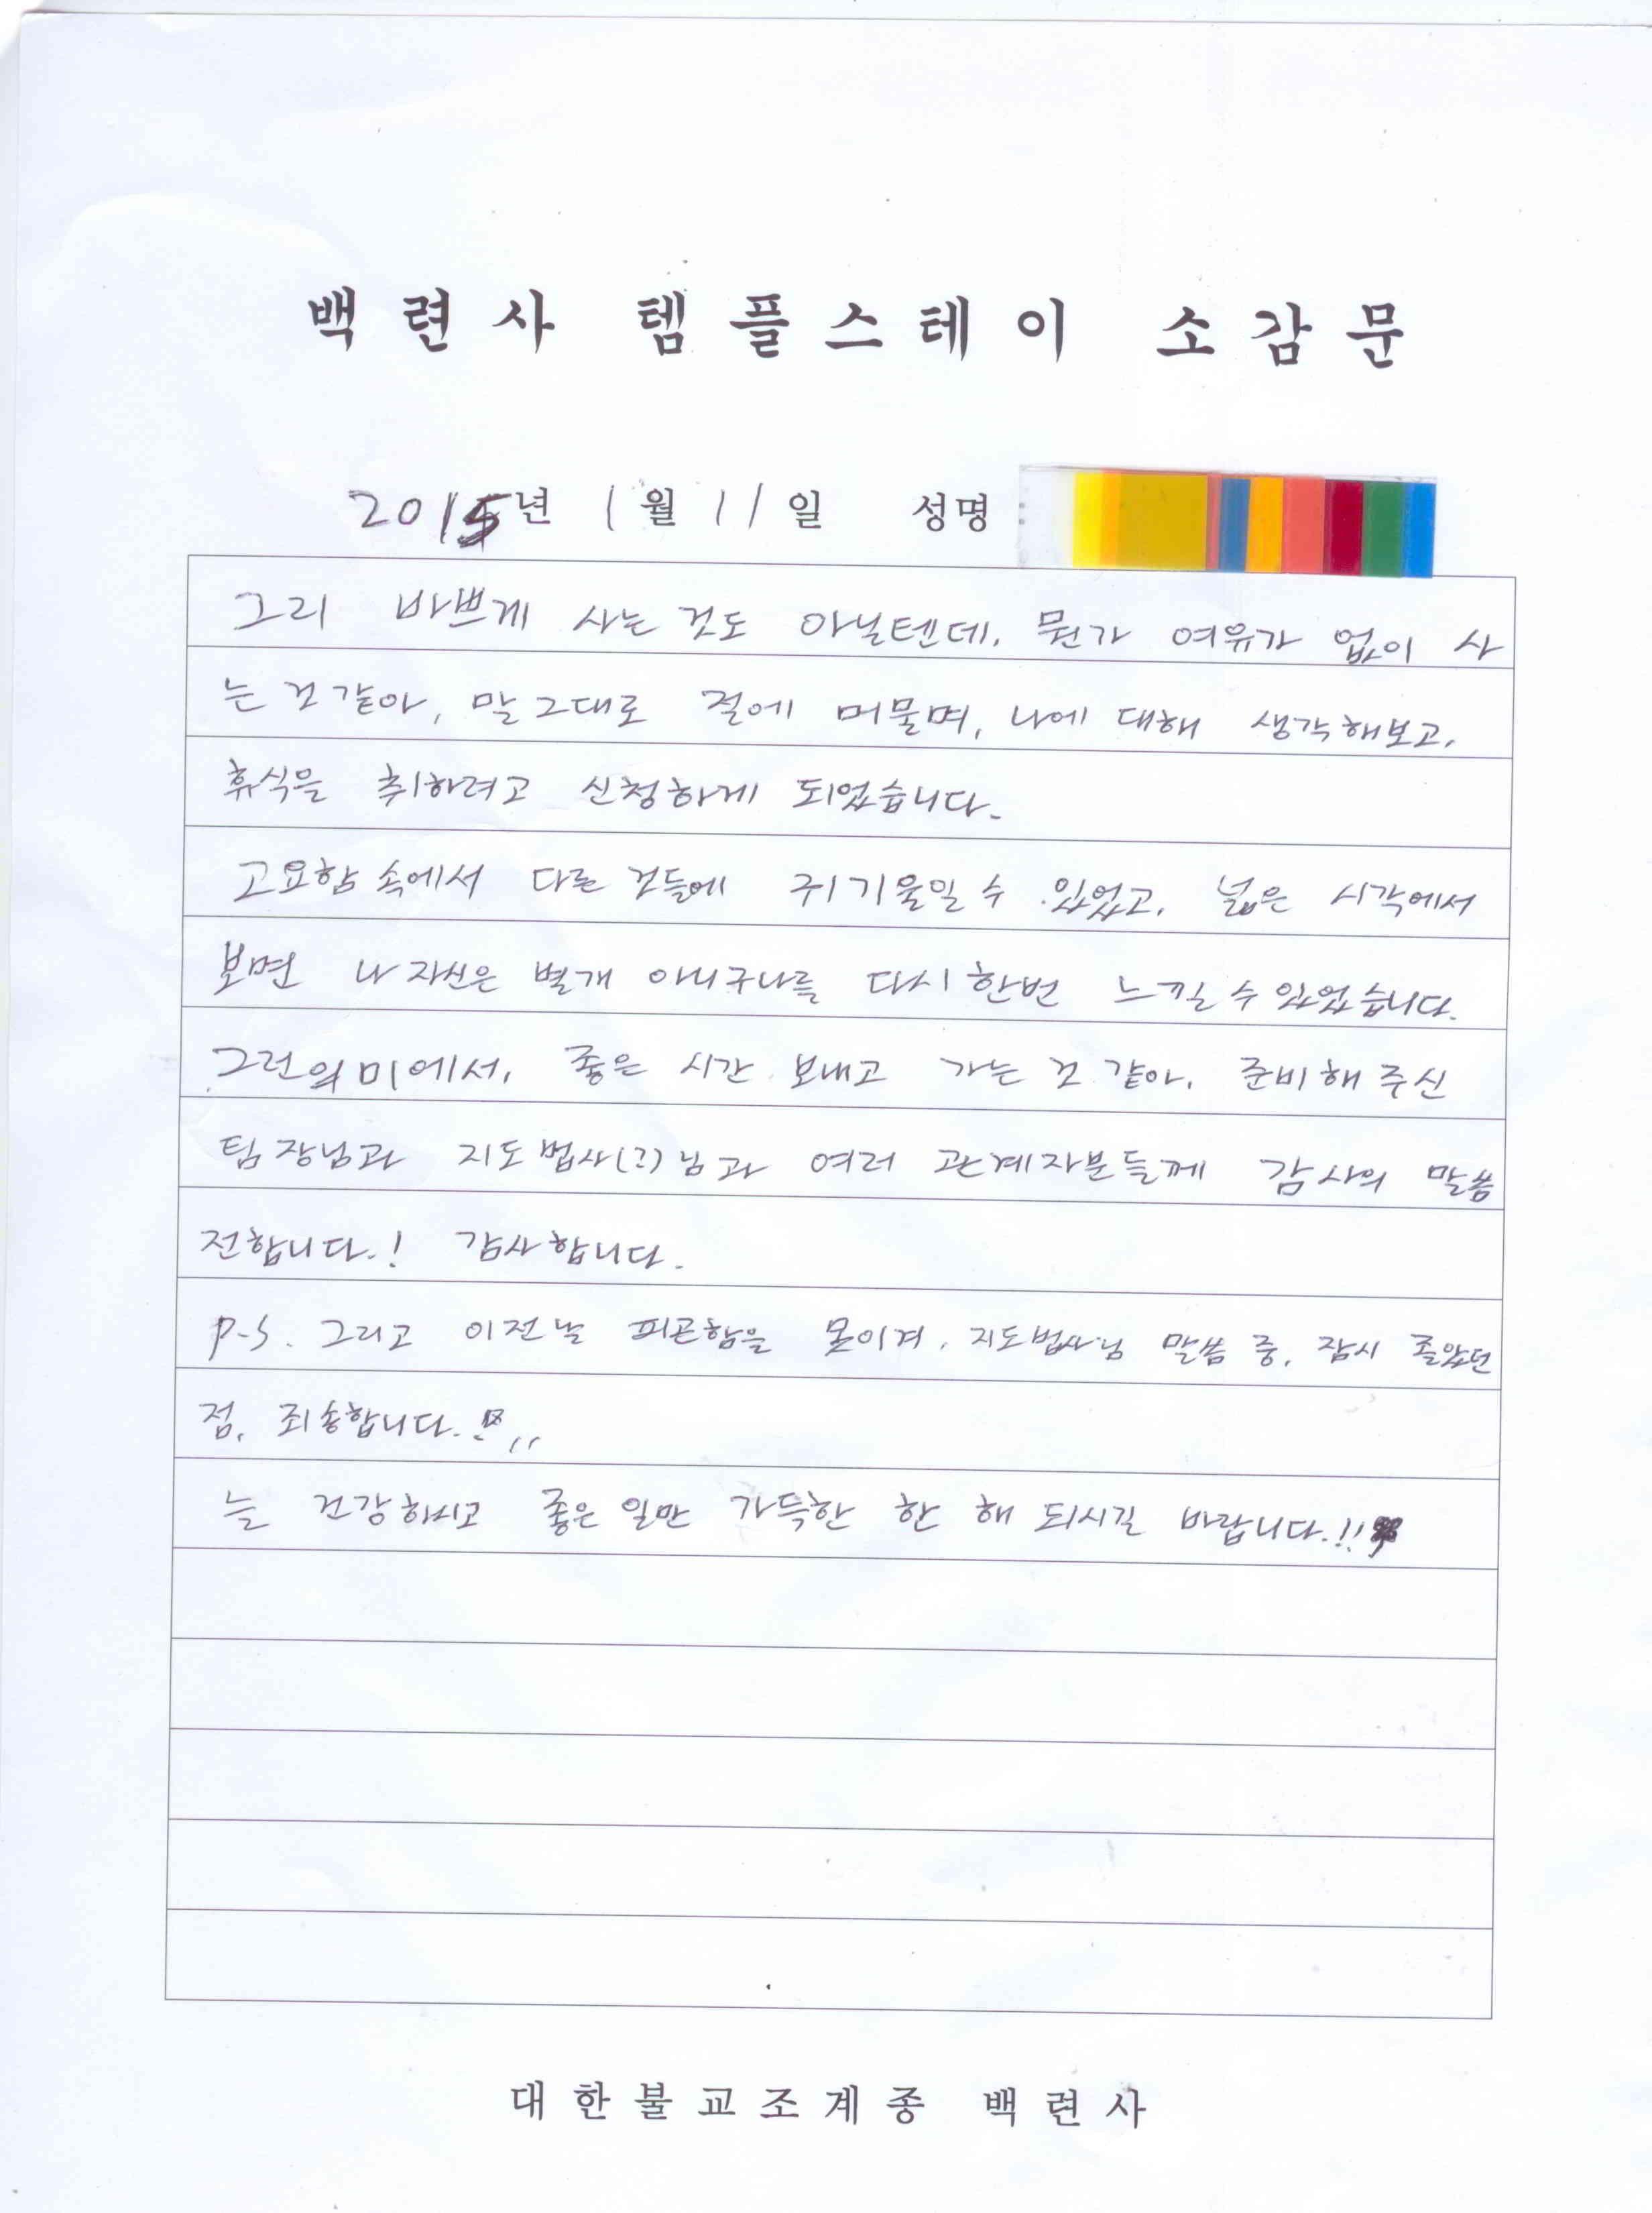 백련사 템플스테이 소감문
2015년 1월 11일 성명
그리 바쁘게 사는 것도 아닐텐데, 뭔가 여유가 없이 사
는 것 같아, 말 그대로 절에 머물며, 나에 대해 생각해보고,
휴식을 취하려고 신청하게 되었습니다.
고요함 속에서 다른 것들에 귀 기울일 수 있었고, 넓은 시각에서
보면 나 자신은 별개 아니구나를 다시 한번 느낄 수 있었습니다.
그런 의미에서, 좋은 시간 보내고 가는 것 같아, 준비해 주신
팀장님과 지도법사(?)님과 여러 관계자분들께 감사의 말씀
전합니다.! 감사합니다.
P.S. 그리고 이전날 피곤함을 못이겨, 지도법사님 말씀 중, 잠시 졸았던
점, 죄송합니다.
늘 건강하시고 좋은 일만 가득한 한 해 되시길 바랍니다.!!
대한불교조계종 백련사